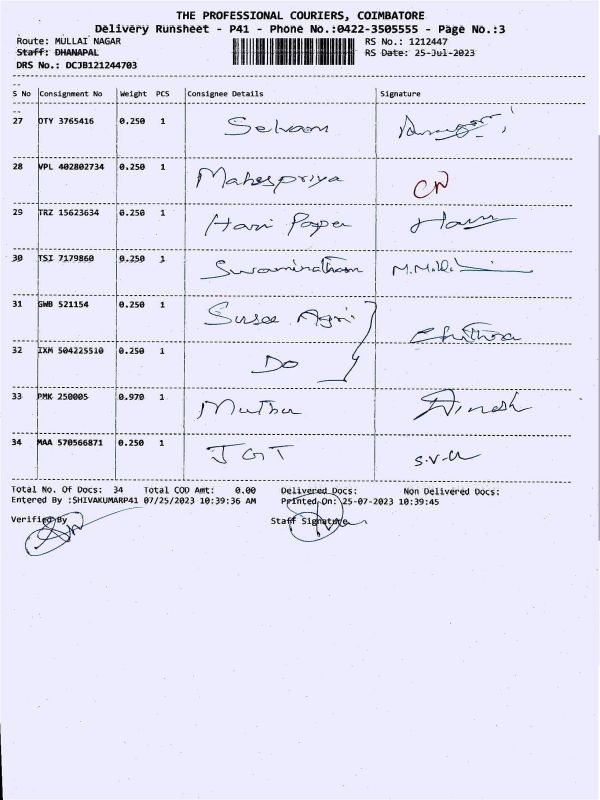 THE PROFESSIONAL COURIERS, COIMBATORE
Delivery Runsheet - P41 - Phone No.:0422-3505555 - Page No.:3
Route: MULLAI NAGAR RS No.: 1212447
Staff: DHANAPAL RS Date: 25-Jul-2023
DRS No.: DCJB121244703
S No Consignment No Weight PCS Consignee Details Signature
27 OTY 3765416 0.250 1 Selvam
28 VPL 402802734 0.250 1 Mahespriya
29 TRZ 15623634 0.250 1 Hari Paper
30 TSI 7179860 0.250 1 Swaminathan
31 GWB 521154 0.250 1 Susee Agri
Chithra
32 IXM 504225510 0.250 1 Do
33 PMK 250005 0.970 1 Muthu Dinesh
34 MAA 570566871 0.250 1 JGT
Total No. Of Docs: 34 Total COD Amt: 0.00 Delivered Docs: Non Delivered Docs:
Entered By :SHIVAKUMARP41 07/25/2023 10:39:36 AM Printed On: 25-07-2023 10:39:45
Verified By Staff Signature